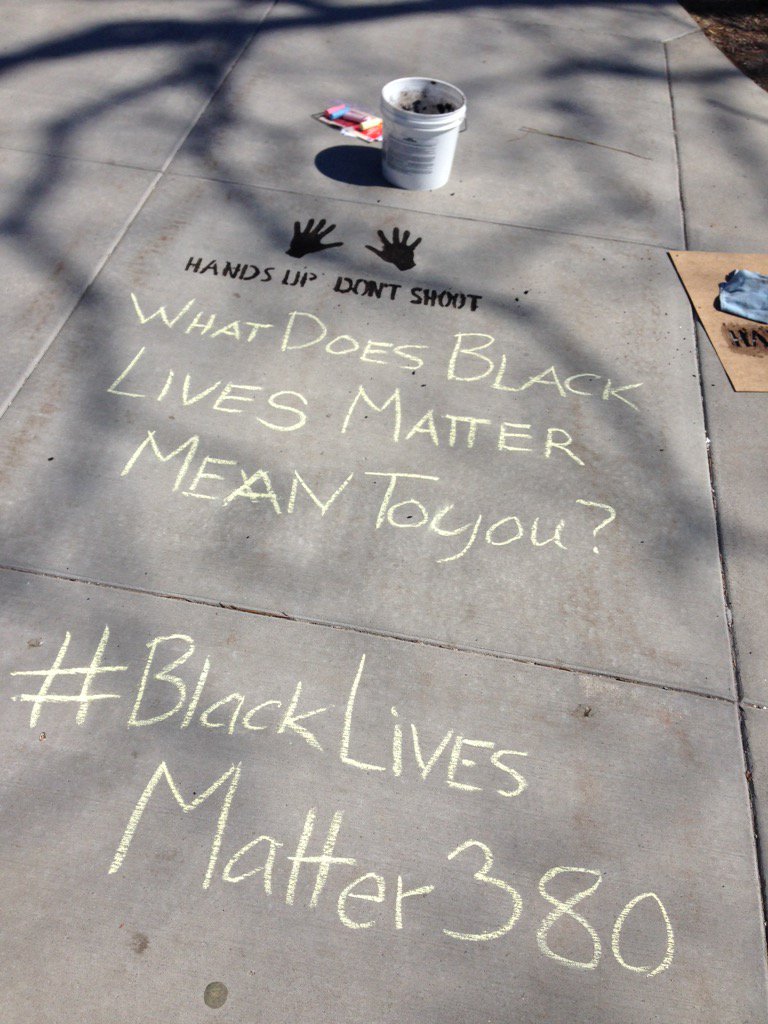 HANDS UP DON'T SHOOT
WHAT DOES BLACK
LIVES MATTER
MEAN TO you?
#Black LIVES
Matter 380
HA